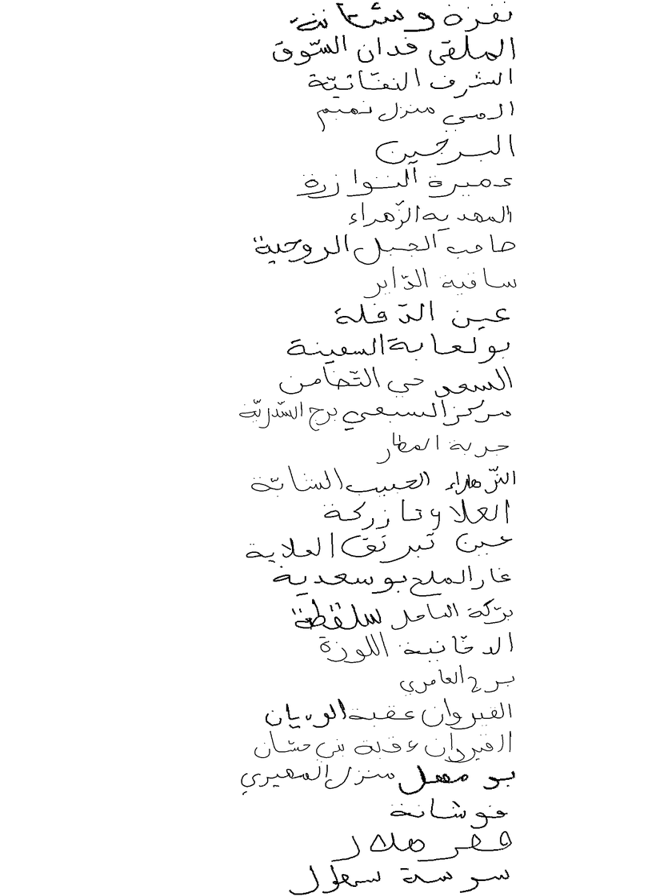 نفزة وشتاتة
الملقى فدان السّوق
الشرف النفّاتيّة
المي منزل تميم
البرجين
عميرة النوازرة
المهدية الزّهراء
صاحب الجبل الروحية
ساقية الدّاير
عين الدّفلة
بولعابة السفينة
السعد حي التّضامن
مركز السبعي برج السّدريّة
جربة المطار
الزّهراء الحبيب الشابّة
العلا وتازركة
عين تبرنق العلاية
غار الملح بوسعدية
بركة الساحل سلقطة
الدخانية اللوزة
برج العامري
القيروان عقبة الوديان
القيروان عقبة بني حسّان
بو مهل منزل المهيري
فوشانة
قصر هلال
سرسة سهلول